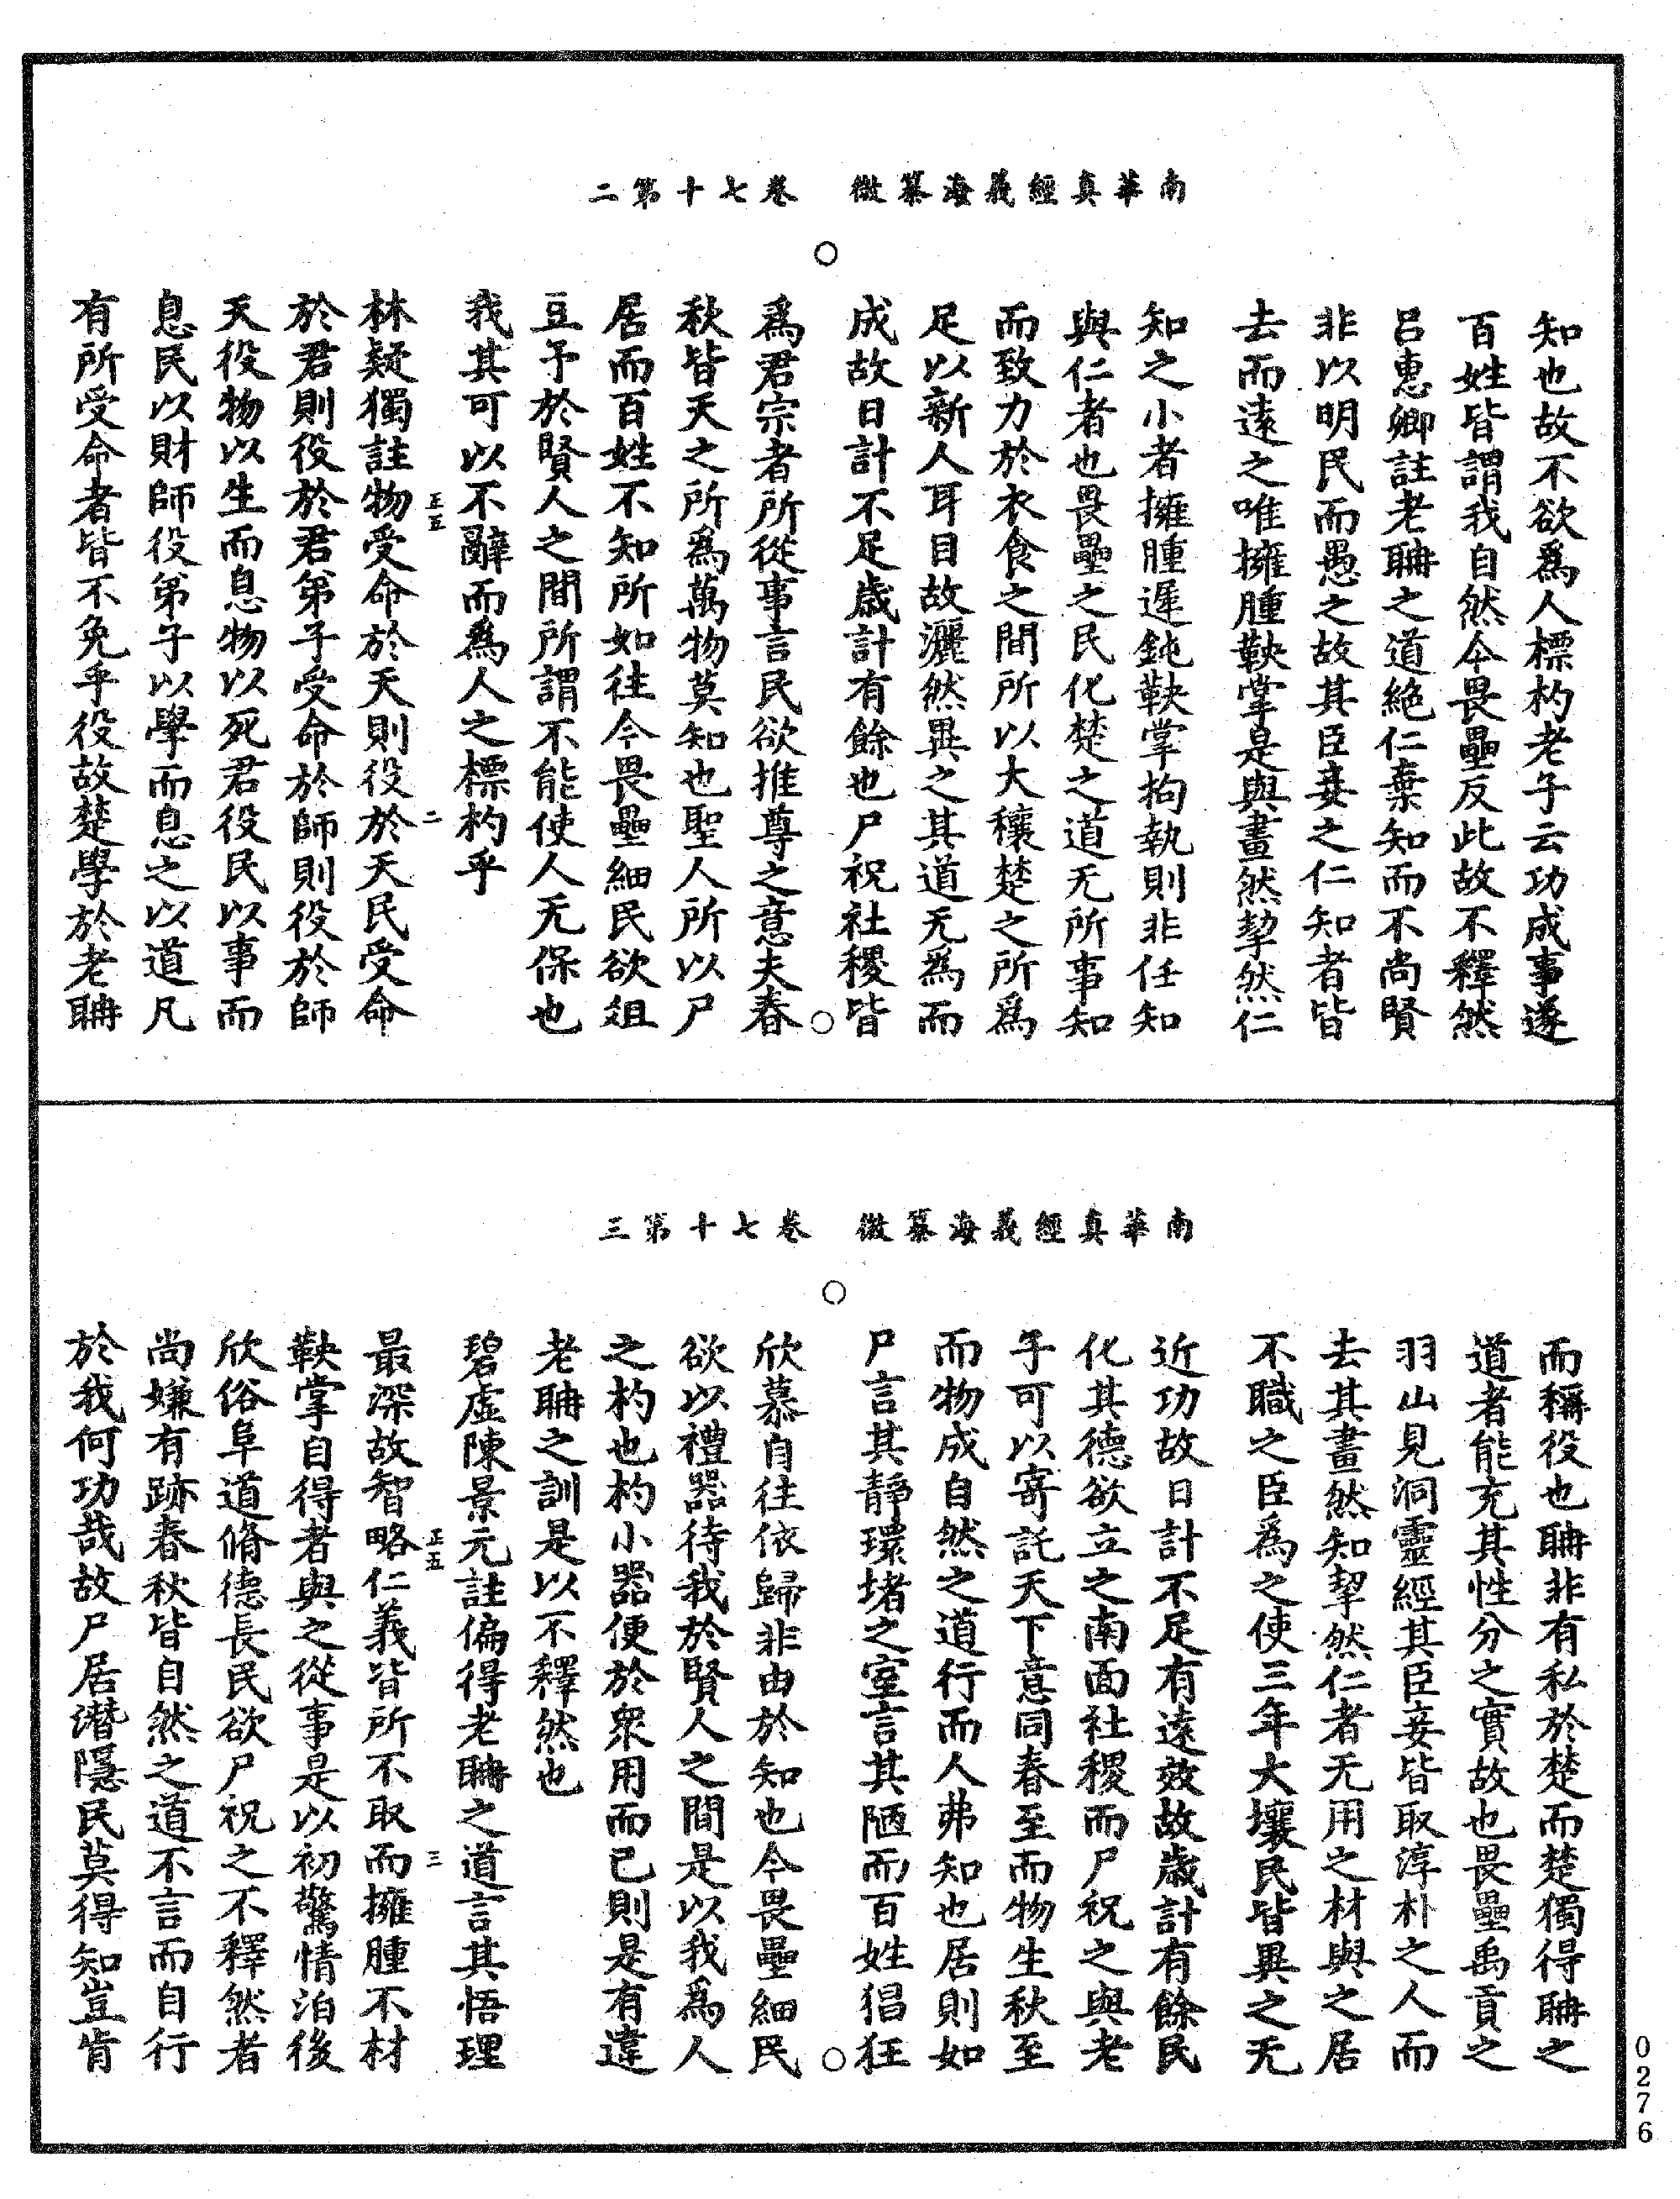 南華真經義海纂微　卷七十第二
知也故不欲爲人標杓老子云功成事遂
百姓皆謂我自然今畏壘反此故不釋然
呂惠卿註老聃之道絕仁棄知而不尚賢
非以明民而愚之故其臣妾之仁知者皆
去而遠之唯擁腫鞅掌是與畫然挈然仁
知之小者擁腫遲鈍鞅掌拘執則非任知
與仁者也畏壘之民化楚之道无所事知
而致力於衣食之間所以大穰楚之所爲
足以新人耳目故灑然異之其道无爲而
成故日計不足歲計有餘也尸祝社稷皆
爲君宗者所從事言民欲推尊之意夫春
秋皆天之所爲萬物莫知也聖人所以尸
居而百姓不知所如往今畏壘細民欲俎
豆予於賢人之間所謂不能使人无保也
我其可以不辭而爲人之標杓乎
正五
二
林疑獨註物受命於天則役於天民受命
於君則役於君弟子受命於師則役於師
天役物以生而息物以死君役民以事而
息民以財師役弟子以學而息之以道凡
有所受命者皆不免乎役故楚學於老聃
南華真經義海纂微　卷七十第三
而稱役也聃非有私於楚而楚獨得聃之
道者能充其性分之實故也畏壘禹貢之
羽山見洞靈經其臣妾皆取淳朴之人而
去其畫然知挈然仁者无用之材與之居
不職之臣爲之使三年大壤民皆異之无
近功故日計不足有遠效故歲計有餘民
化其德欲立之南面社稷而尸祝之與老
子可以寄託天下意同春至而物生秋至
而物成自然之道行而人弗知也居則如
尸言其靜環堵之室言其陋而百姓猖狂
欣慕自往依歸非由於知也今畏壘細民
欲以禮器待我於賢人之間是以我爲人
之杓也杓小器便於衆用而已則是有違
老聃之訓是以不釋然也
碧虛陳景元註偏得老聃之道言其悟理
正五
三
最深故智略仁義皆所不取而擁腫不材
鞅掌自得者與之從事是以初驚情洎後
欣俗阜道脩德長民欲尸祝之不釋然者
尚嫌有跡春秋皆自然之道不言而自行
於我何功哉故尸居潛隱民莫得知豈肯
0276